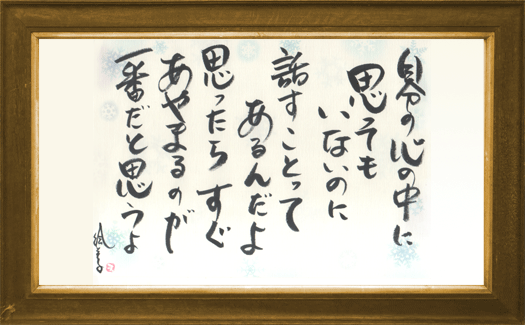 自分の心の中に
思っても
いないのに
話すことって
あるんだよ
思ったら すぐ
あやまるのが
一番だと思うよ